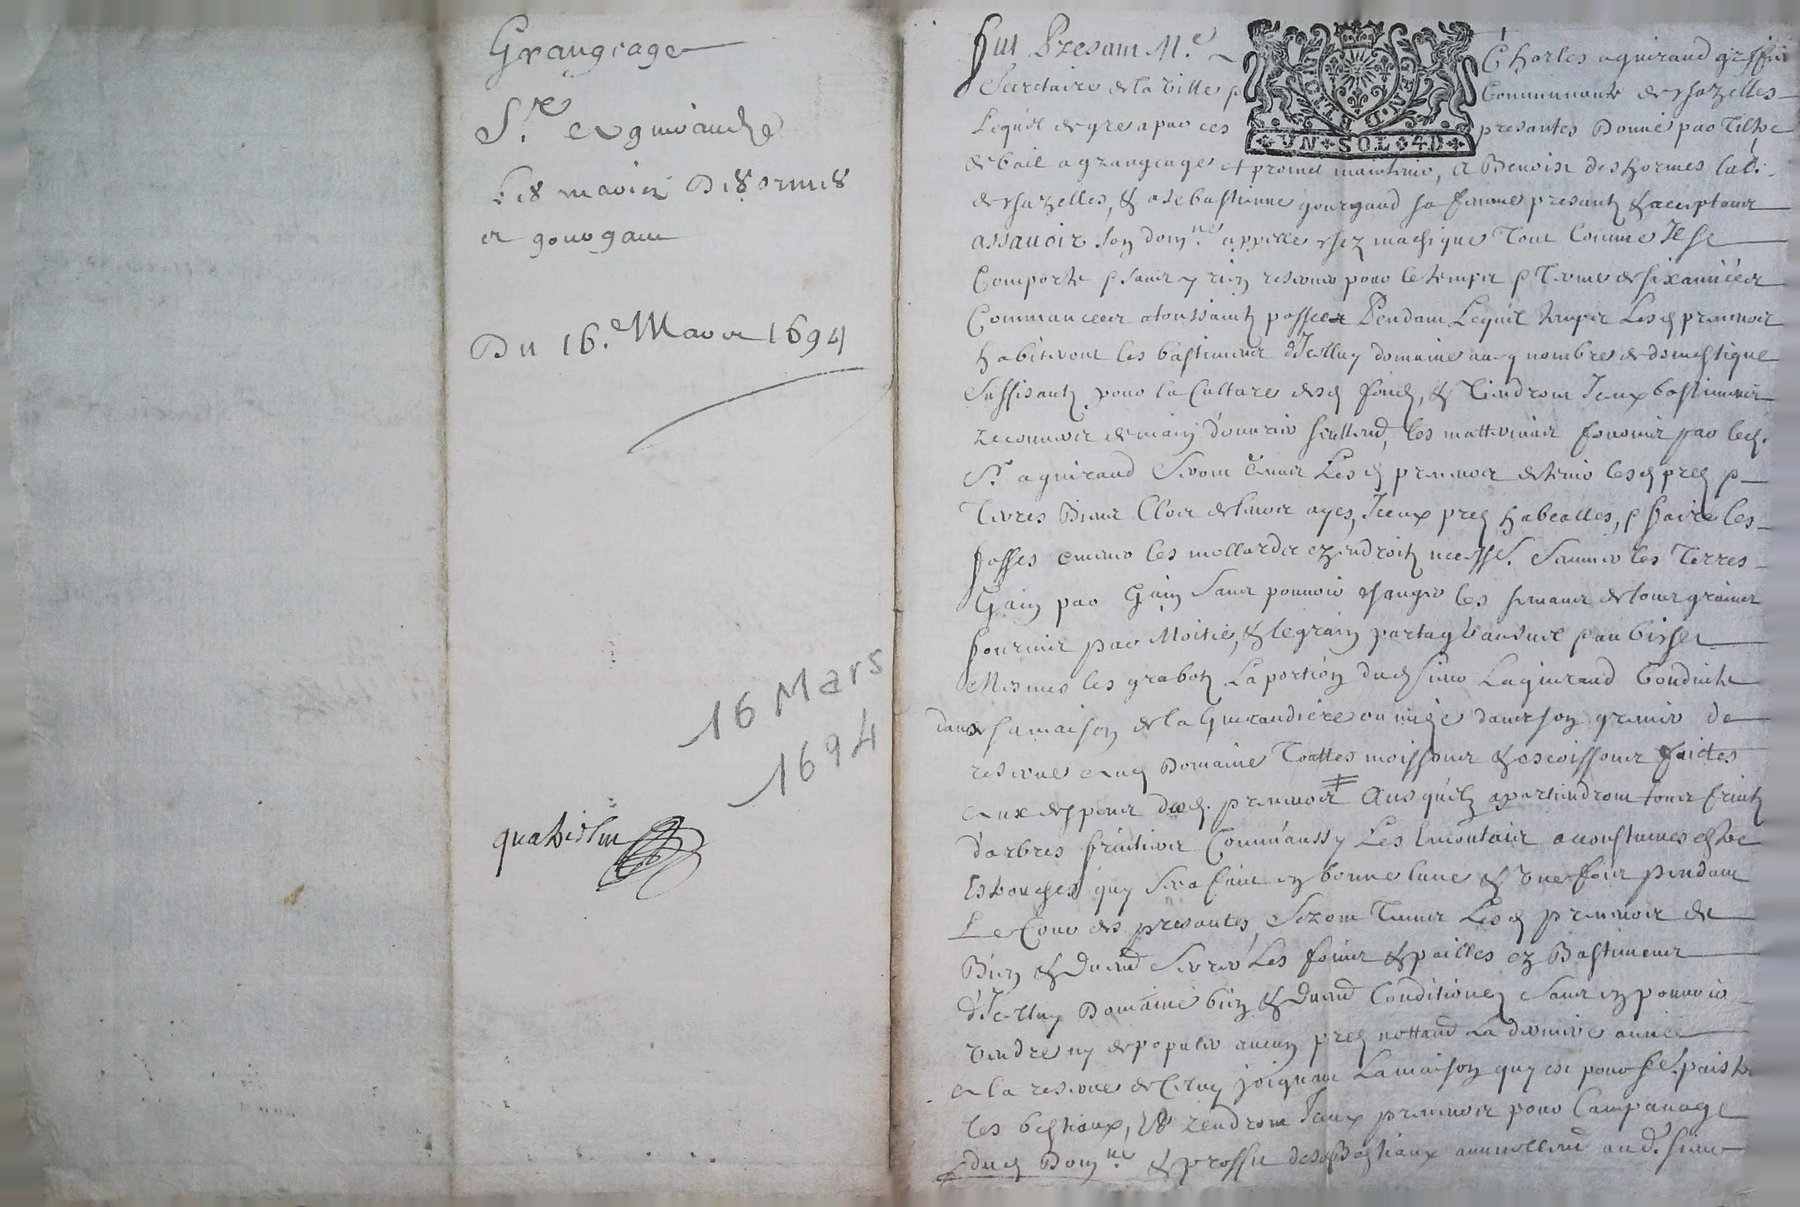 Grangeage
Sr. aguiraud
Les mariez Desormes
et gourgaud
Du 16.e Mars 1694
16 Mars
1694
Fut Presant Me Charles aguiraud greffier
Secretaire de la ville Communauté de chazelles
Lequel de gre a par ces presantes Donné par Tiltre
de bail a grangeage et promet maintenir, a Benoist des hormes lab.
de chazelles, & a sebastienne gourgaud sa femme presants & acceptants
assavoir son domne appellé chez machique Tout Comme Il se
Comporte sans y rien reserver pour le temps & Terme de six années
Commancées a toussaincts passée Pendant Lequel temps Lesd preneurs
habiteront les bastiments d'Icelluy domaine avec nombre de domestique
suffisants pour la Culture desd fonds, & Tiendront Iceux bastiments
recouverts de main d'ouvrier seullemt, les matteriaux fournis par led.
Sr aguiraud Seront tenus Lesd preneurs de tenir lesd prez &
Terres Bien Clos de leurs ayes, Iceux prez &faire les
fosses curer les mollardes ez endroits necessrs. Semer les Terres
Grain par Grain Sans pouvoir changer les semances de tous grains
fournir par Moitié, & le grain partagé
Mesmes les grabots La portion dud sieur aguiraud Conduite
dans sa maison de la Guiraudiere ou mise dans son grenier de
reserve aud Domaine Touttes moissons & escoissons faictes
aux despens desd. preneurs Ausquels apartiendront tous fruits
d'arbres fruitiers Comm'aussy Les accoustumes
quy sera faict en bonne lune & Une fois pendant
Le Cour des presantes, Seront Tenus Lesd preneurs de
Bien & Duemt Serrer Les foins & pailles ez Bastiments
d'Icelluy Domaine bien & Duemt Conditionez sans en pouvoir
vendre ny aucuns prez nottamt La derniere année
a la reserve de Celuy joignant La maison quy est pour paistre
les bestiaux, & rendront Iceux preneurs pour Campanage
dud Domne & proffit desd Bestiaux annuellemt aud. sieur
VN SOL 4D